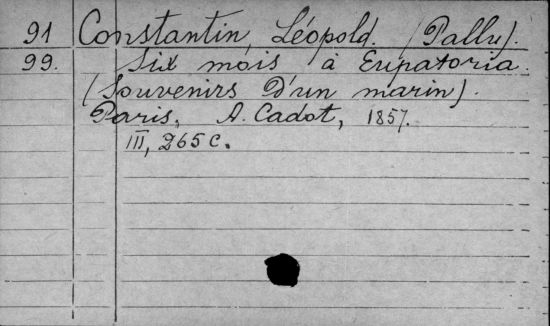 91 Constantin, Léopold. (Pallu).
99. Six mois à Eupatoria.
(Souvenirs D'un marin).
Paris, A. Cadot, 1857.
III, 265 c.